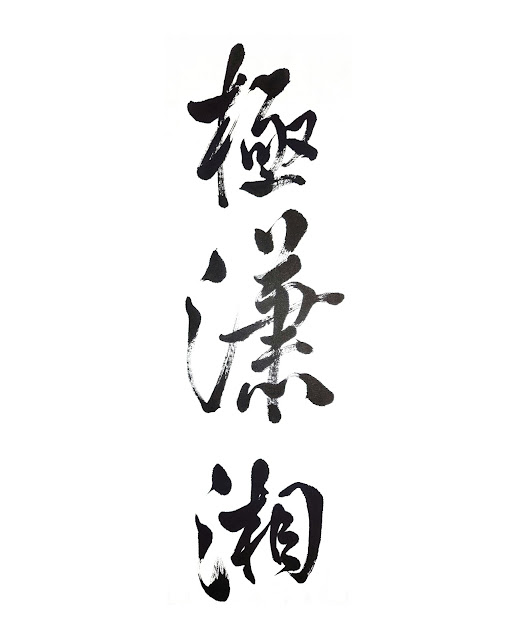 極瀟湘